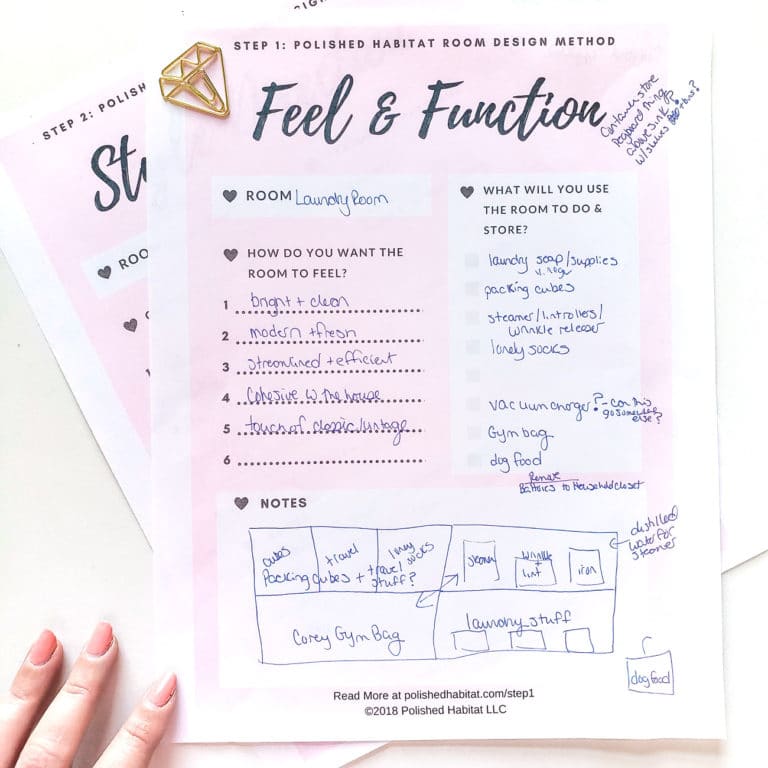 STEP 1: POLISHED HABITAT ROOM DESIGN METHOD
Feel & Function
Container store
pegboard thing
above sink?
w/shelves
STEP 2: POLISH
ROO
ROOM Laundry Room
HOW DO YOU WANT THE
ROOM TO FEEL?
1 bright + clean
2 modern + fresh
3 streamlined + efficient
4 Cohesive w the house
5 touch of classic/vintage
6
WHAT WILL YOU USE
THE ROOM TO DO &
STORE?
laundry soap/supplies
packing cubes
steamer/lintrollers/
wrinkle releaser
lonely socks
vacuum charger? - can this
go somewhere
else?
Gym bag
dog food
Remove
Batteries to Household closet
NOTES
cubes
travel
lonely
socks
Packing cubes + travel
stuff?
steamer
wrinkle
+
lint
iron
distilled
water for
steamer
Corey Gym Bag
laundry stuff
dog food
Read More at polishedhabitat.com/step1
©2018 Polished Habitat LLC